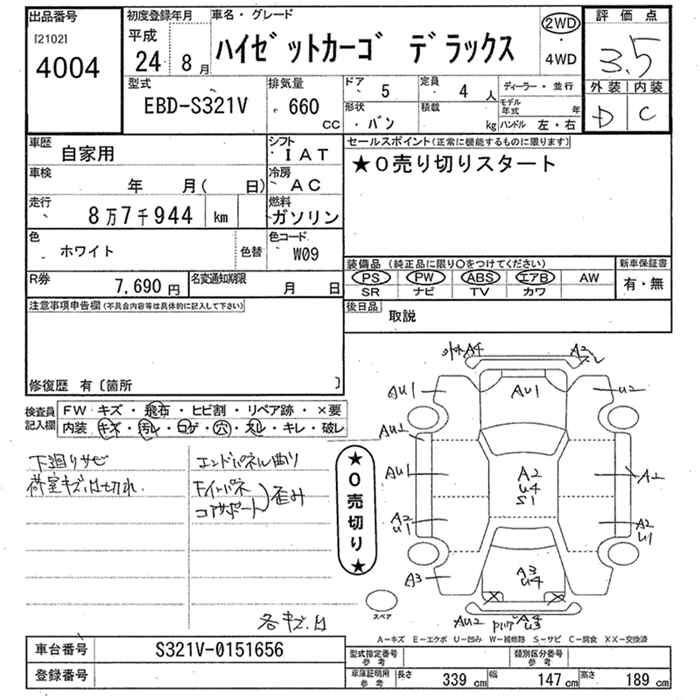 出品番号
[2102]
4004
初度登録年月
平成
24 8月
車名・グレード
ハイゼットカーゴ デラックス
2WD
・
4WD
評価点
3.5
外装 内装
D C
型式
EBD-S321V
排気量
660
cc
ドア
5
定員
4 人
形状
・バン
積載
kg
ディーラー・並行
モデル年式 年
ハンドル 左・右
車歴
自家用
シフト
・IAT
セールスポイント(正常に機能するものに限ります)
★0売り切りスタート
車検
年 月( 日)
冷房
・AC
走行
8万7千944 km
燃料
ガソリン
色
・ホワイト
色替
色コード
・W09
R券
7,690円
名変通知期限
月 日
装備品(純正品に限り○をつけてください)
PS PW ABS エアB AW
SR ナビ TV カワ
新車保証書
有・無
後日品
取説
注意事項申告欄(不具合内容等は具体的に記入して下さい)
修復歴 有〔箇所 〕
検査員記入欄
FW キズ・飛石・ヒビ割・リペア跡・×要
内装 キズ・汚レ・コゲ・穴・スレ・キレ・破レ
下廻りサビ
荷室キズ凹切れ
エンドパネル曲り
Fインパネ
コアサポート)歪み
各キズ、凹
★0売切り★
A4
A2
AU1
AU1
U2
AU2
AU1
A2
U4
S1
A2
A2
U1
A2
U1
A3
A3
U4
AU2
A4
U3
スペア
A−キズ E−エクボ U−凹み W−補修跡 S−サビ C−腐食 XX−交換済
車台番号
S321V-0151656
登録番号
型式指定番号
参考
類別区分番号
参考
車庫証明用
参考
長さ 339 cm 幅 147 cm 高さ 189 cm